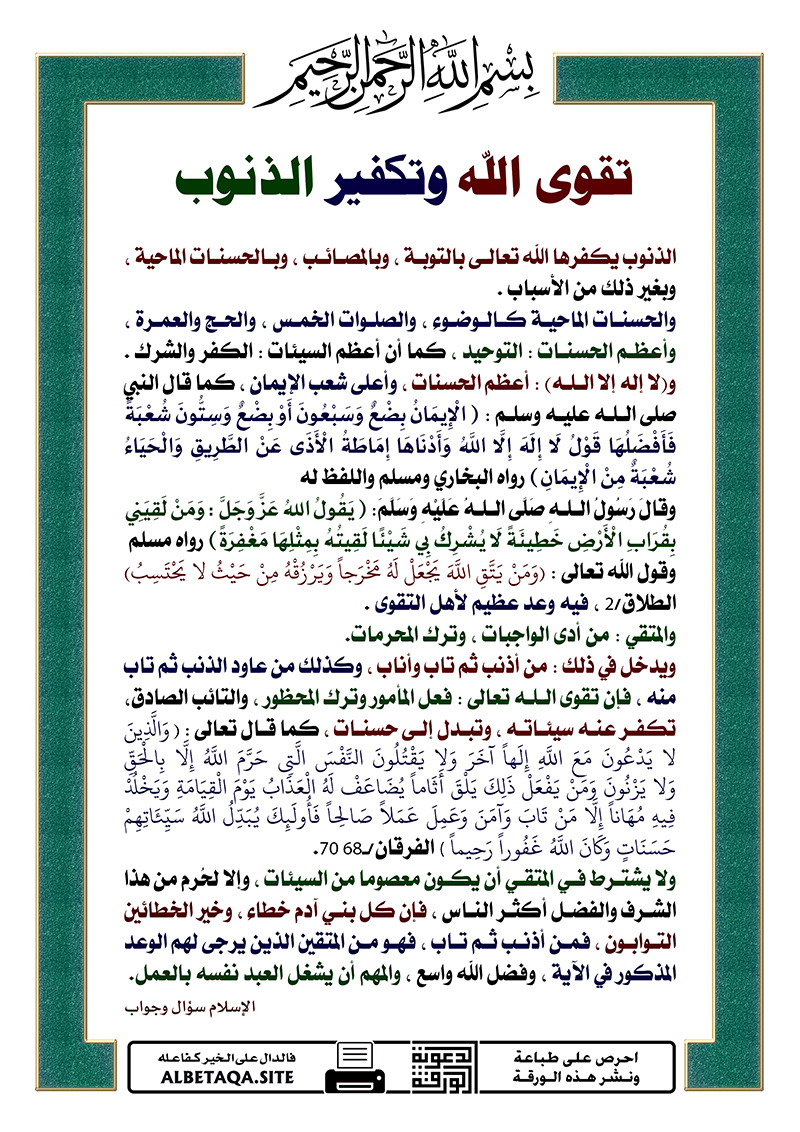 بِسْمِ اللَّهِ الرَّحْمَنِ الرَّحِيمِ
تقوى الله وتكفير الذنوب
الذنوب يكفرها الله تعالى بالتوبة ، وبالمصائب ، وبالحسنات الماحية ،
وبغير ذلك من الأسباب .
والحسنات الماحية كالوضوء ، والصلوات الخمس ، والحج والعمرة ،
وأعظم الحسنات : التوحيد ، كما أن أعظم السيئات : الكفر والشرك .
و(لا إله إلا الله) : أعظم الحسنات ، وأعلى شعب الإيمان ، كما قال النبي
صلى الله عليه وسلم : ( الْإِيمَانُ بِضْعٌ وَسَبْعُونَ أَوْ بِضْعٌ وَسِتُّونَ شُعْبَةً
فَأَفْضَلُهَا قَوْلُ لَا إِلَهَ إِلَّا اللَّهُ وَأَدْنَاهَا إِمَاطَةُ الْأَذَى عَنْ الطَّرِيقِ وَالْحَيَاءُ
شُعْبَةٌ مِنْ الْإِيمَانِ ) رواه البخاري ومسلم واللفظ له
وقالَ رَسُولُ اللهِ صَلَّى اللهُ عَلَيْهِ وَسَلَّمَ: ( يَقُولُ اللهُ عَزَّ وَجَلَّ : وَمَنْ لَقِيَنِي
بِقُرَابِ الْأَرْضِ خَطِيئَةً لَا يُشْرِكُ بِي شَيْئًا لَقِيتُهُ بِمِثْلِهَا مَغْفِرَةً ) رواه مسلم
وقول الله تعالى : (وَمَنْ يَتَّقِ اللَّهَ يَجْعَلْ لَهُ مَخْرَجاً وَيَرْزُقْهُ مِنْ حَيْثُ لا يَحْتَسِبُ)
الطلاق/2 ، فيه وعد عظيم لأهل التقوى .
والمتقي : من أدى الواجبات ، وترك المحرمات.
ويدخل في ذلك : من أذنب ثم تاب وأناب ، وكذلك من عاود الذنب ثم تاب
منه ، فإن تقوى الله تعالى : فعل المأمور وترك المحظور ، والتائب الصادق،
تكفر عنه سيئاته ، وتبدل إلى حسنات ، كما قال تعالى : ( وَالَّذِينَ
لا يَدْعُونَ مَعَ اللَّهِ إِلَهاً آخَرَ وَلا يَقْتُلُونَ النَّفْسَ الَّتِي حَرَّمَ اللَّهُ إِلَّا بِالْحَقِّ
وَلا يَزْنُونَ وَمَنْ يَفْعَلْ ذَلِكَ يَلْقَ أَثَاماً يُضَاعَفْ لَهُ الْعَذَابُ يَوْمَ الْقِيَامَةِ وَيَخْلُدْ
فِيهِ مُهَاناً إِلَّا مَنْ تَابَ وَآمَنَ وَعَمِلَ عَمَلاً صَالِحاً فَأُولَئِكَ يُبَدِّلُ اللَّهُ سَيِّئَاتِهِمْ
حَسَنَاتٍ وَكَانَ اللَّهُ غَفُوراً رَحِيماً ) الفرقان/68ـ 70.
ولا يشترط في المتقي أن يكون معصوما من السيئات ، وإلا لحُرم من هذا
الشرف والفضل أكثر الناس ، فإن كل بني آدم خطاء ، وخير الخطائين
التوابون ، فمن أذنب ثم تاب ، فهو من المتقين الذين يرجى لهم الوعد
المذكور في الآية ، وفضل الله واسع ، والمهم أن يشغل العبد نفسه بالعمل.
الإسلام سؤال وجواب
احرص على طباعة
ونشر هذه الورقة
الورقة
الدعوية
فالدال على الخير كفاعله
ALBETAQA.SITE